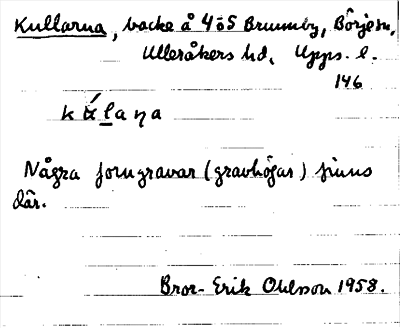 Kullarna, backe å 4 o 5 Brunnby, Börje sn,
Ulleråkers hd, Upps. l.
146
kúlaηa
Några forngravar (gravhögar) finns
där.
Bror-Erik Ohlsson 1958.